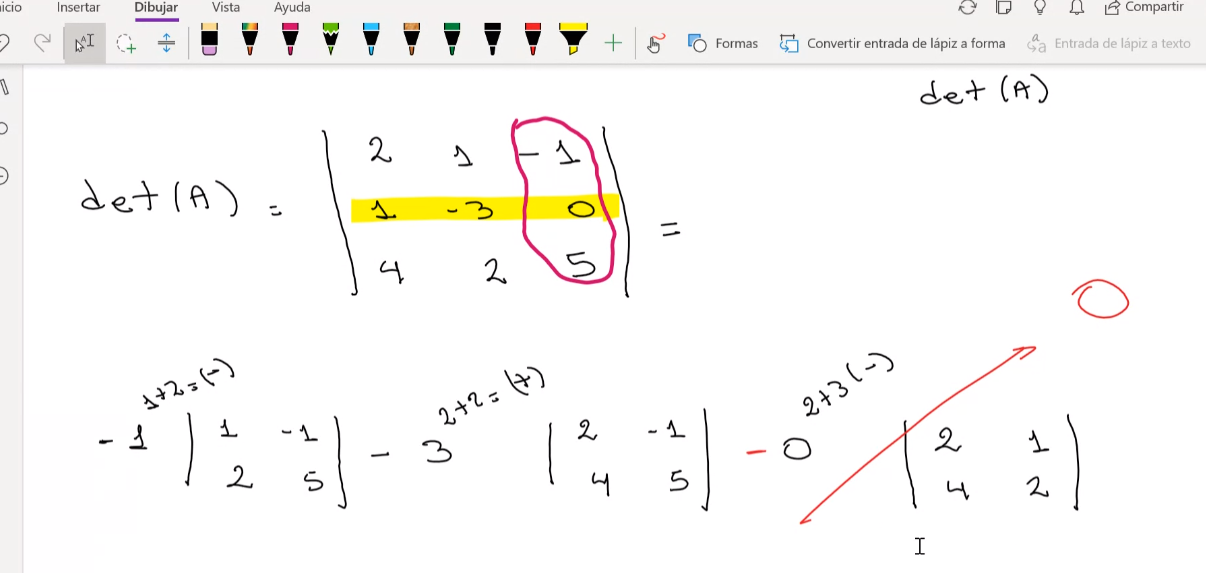 icio Insertar Dibujar Vista Ayuda Compartir
Formas Convertir entrada de lápiz a forma Entrada de lápiz a texto
det (A)
det (A) = | 2 1 -1 |
| 1 -3 0 | =
| 4 2 5 |
0
1+2=(-) 2+2=(+) 2+3(-)
-1 | 1 -1 | - 3 | 2 -1 | - 0 | 2 1 |
| 2 5 | | 4 5 | | 4 2 |